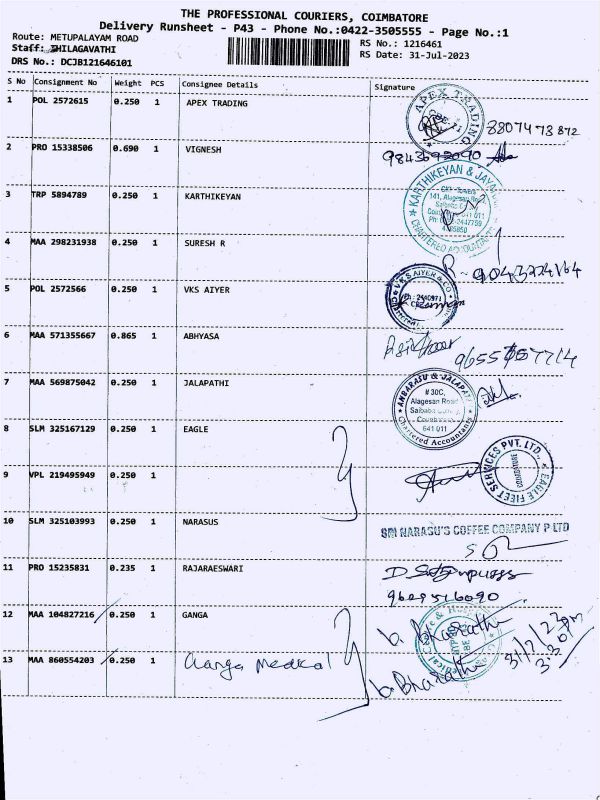 THE PROFESSIONAL COURIERS, COIMBATORE
Delivery Runsheet - P43 - Phone No.:0422-3505555 - Page No.:1
Route: METUPALAYAM ROAD
Staff: THILAGAVATHI
DRS No.: DCJB121646101
RS No.: 1216461
RS Date: 31-Jul-2023
S No Consignment No Weight PCS Consignee Details Signature
1 POL 2572615 0.250 1 APEX TRADING
APEX TRADING
8807473872
2 PRO 15338506 0.690 1 VIGNESH
3 TRP 5894789 0.250 1 KARTHIKEYAN
KARTHIKEYAN & JAYA
141, Alagesan Road
CHARTERED ACCOUNTANTS
4 MAA 298231938 0.250 1 SURESH R
5 POL 2572566 0.250 1 VKS AIYER
VKS AIYER & CO
Ph : 2440971
6 MAA 571355667 0.865 1 ABHYASA
7 MAA 569875042 0.250 1 JALAPATHI
ANBARASU & JALAPATHI
# 30C,
Alagesan Road
Saibaba Colony
Coimbatore
641 011
Chartered Accountants
8 SLM 325167129 0.250 1 EAGLE
EAGLE FLEET SERVICES PVT. LTD.,
COIMBATORE
9 VPL 219495949 0.250 1
10 SLM 325103993 0.250 1 NARASUS
SRI NARASU'S COFFEE COMPANY P LTD
11 PRO 15235831 0.235 1 RAJARAESWARI
9629516090
12 MAA 104827216 0.250 1 GANGA
b. Bharathi
31/7/23
3.30 pm
13 MAA 860554203 0.250 1 Ganga Medical
b. Bharathi